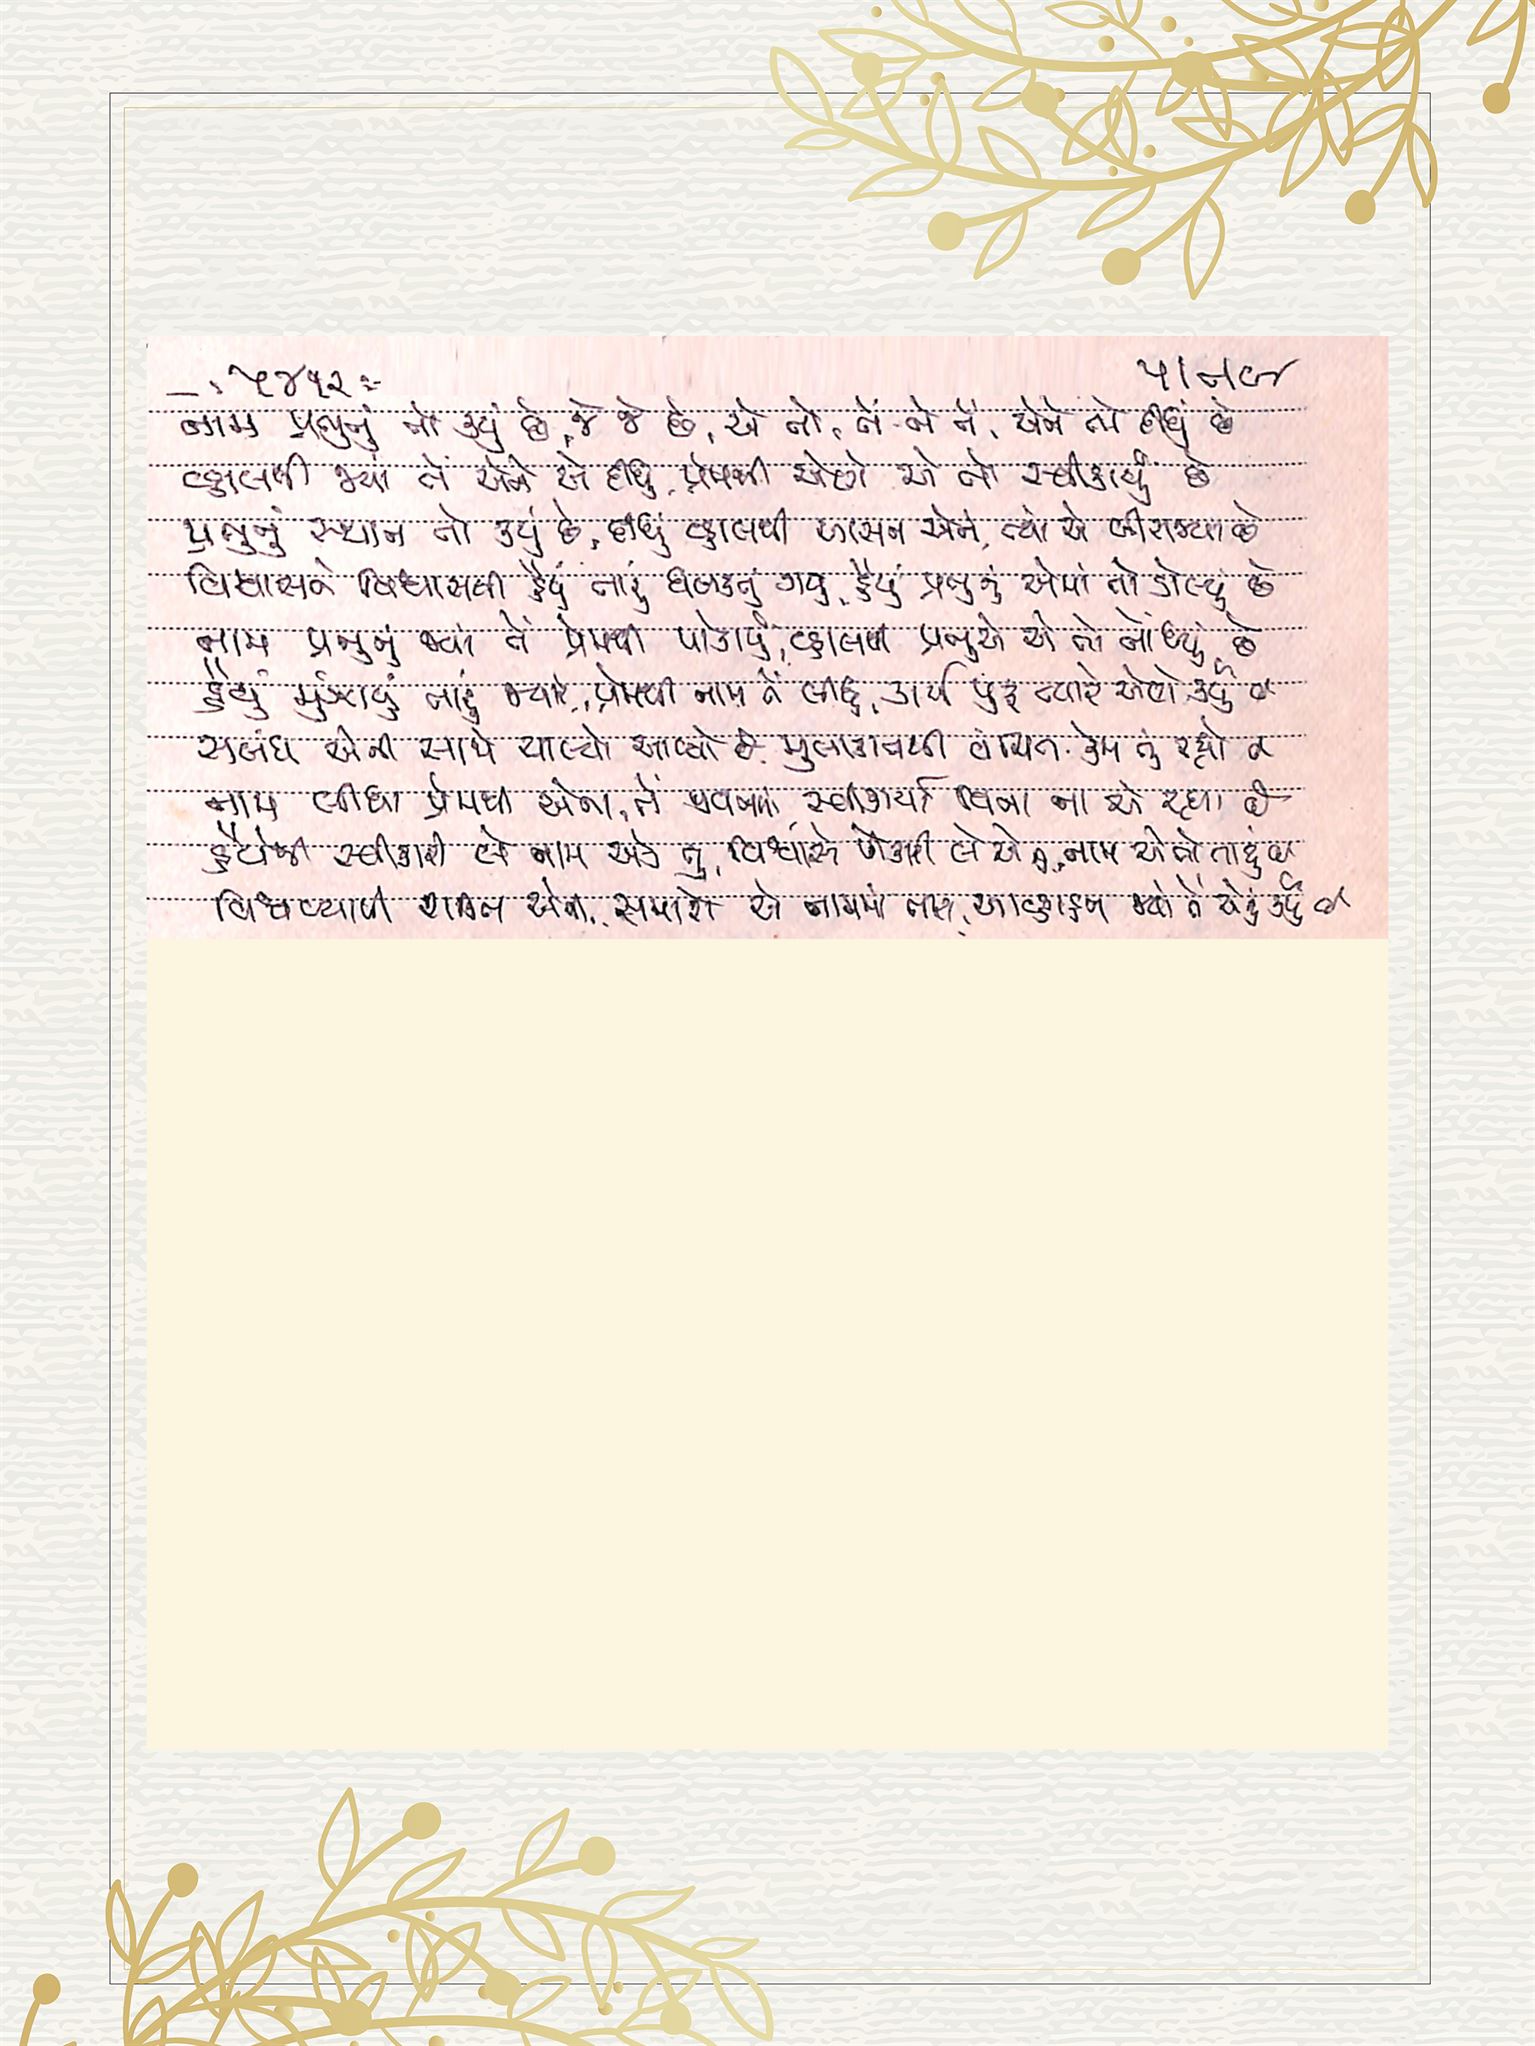 ૫૪૧૨
નામ પ્રભુનું તો કયું છે, જે જે છે, એ તો, તેં ને તેં, એને તો દીધું છે
વ્હાલથી જ્યાં તેં એને એ દીધું, પ્રેમથી એણે એ તો સ્વીકાર્યું છે
પ્રભુનું સ્થાન તો કયું છે, દીધું વ્હાલથી આસન એને, ત્યાં એ બીરાજ્યા છે
વિશ્વાસને વિશ્વાસથી હૈયું તારું ધબકતું ગયું, હૈયું પ્રભુનું એમાં તો ડોલ્યું છે
નામ પ્રભુનું જ્યાં તેં પ્રેમથી પોકાર્યું, વ્હાલથી પ્રભુએ એ તો નોંધ્યું છે
હૈયું મુંઝાયું તારું જ્યારે, પ્રેમથી નામ તેં લીધું, કાર્ય પુરૂં ત્યારે એણે કર્યું છે
સબંધ એની સાથે ચાલ્યો આવ્યો છે, મુલાકાતથી વંચિત કેમ તું રહ્યો છે
નામ લીધા પ્રેમથી એના, તેં જ્યાં સ્વીકાર્યા વિના ના એ રહ્યા છે
હૈયેથી સ્વીકારી લે નામ એક તું, વિશ્વાસે પોકારી લે એ તું, નામ એ તો તારું છે
વિશ્વવ્યાપી રાજન એના, સમાશે એ નામમાં તારા, આવ્હાહન જ્યાં તેં એનું કર્યું છે